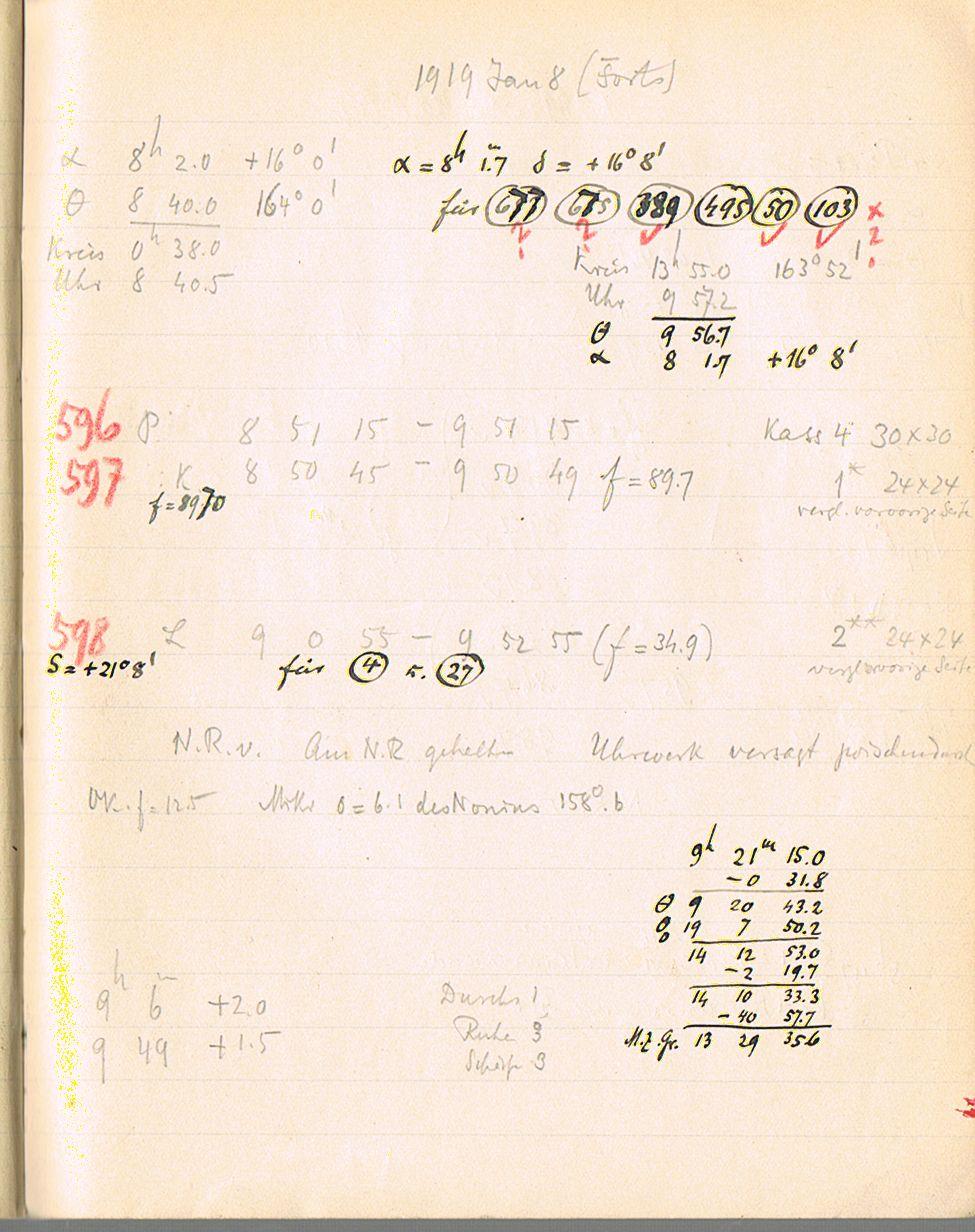 1919 Jan 8 (Forts)
α 8h 2.0 +16° 0'
θ 8 40.0 164° 0'
Kreis 0h 38.0
Uhr 8 40.5
α = 8h 1.m7 δ = +16° 8'
für 677 675 389 495 50 103 x
? ? ✓ ✓ ✓ ?
Kreis 13h 55.0 163° 52'
Uhr 9 57.2
θ 9 56.7
α 8 1.7 +16° 8'
596 P. 8 51 15 – 9 51 15 Kass 4 30×30
597 K 8 50 45 – 9 50 49 f = 89.7 1* 24×24
f = 8970 vergl. vorvorige Seite
598 L 9 0 55 – 9 52 55 (f = 34.9) 2** 24×24
δ = +21° 8' für 4 u. 27 vergl. vorvorige Seite
N.R.v. Am N.R gehalten Uhrwerk versagt zwischendurch
OK. f = 12.5 Mikr 0 = 6.1 des Nonius 158°.6
9h 21m 15.0
–0 31.8
θ 9 20 43.2
θ0 19 7 50.2
14 12 53.0
–2 19.7
14 10 33.3
–40 57.7
M.Z.Gr. 13 29 35.6
9h 6m +2.0
9 49 +1.5
Durchs 1
Ruhe 3
Schärfe 3